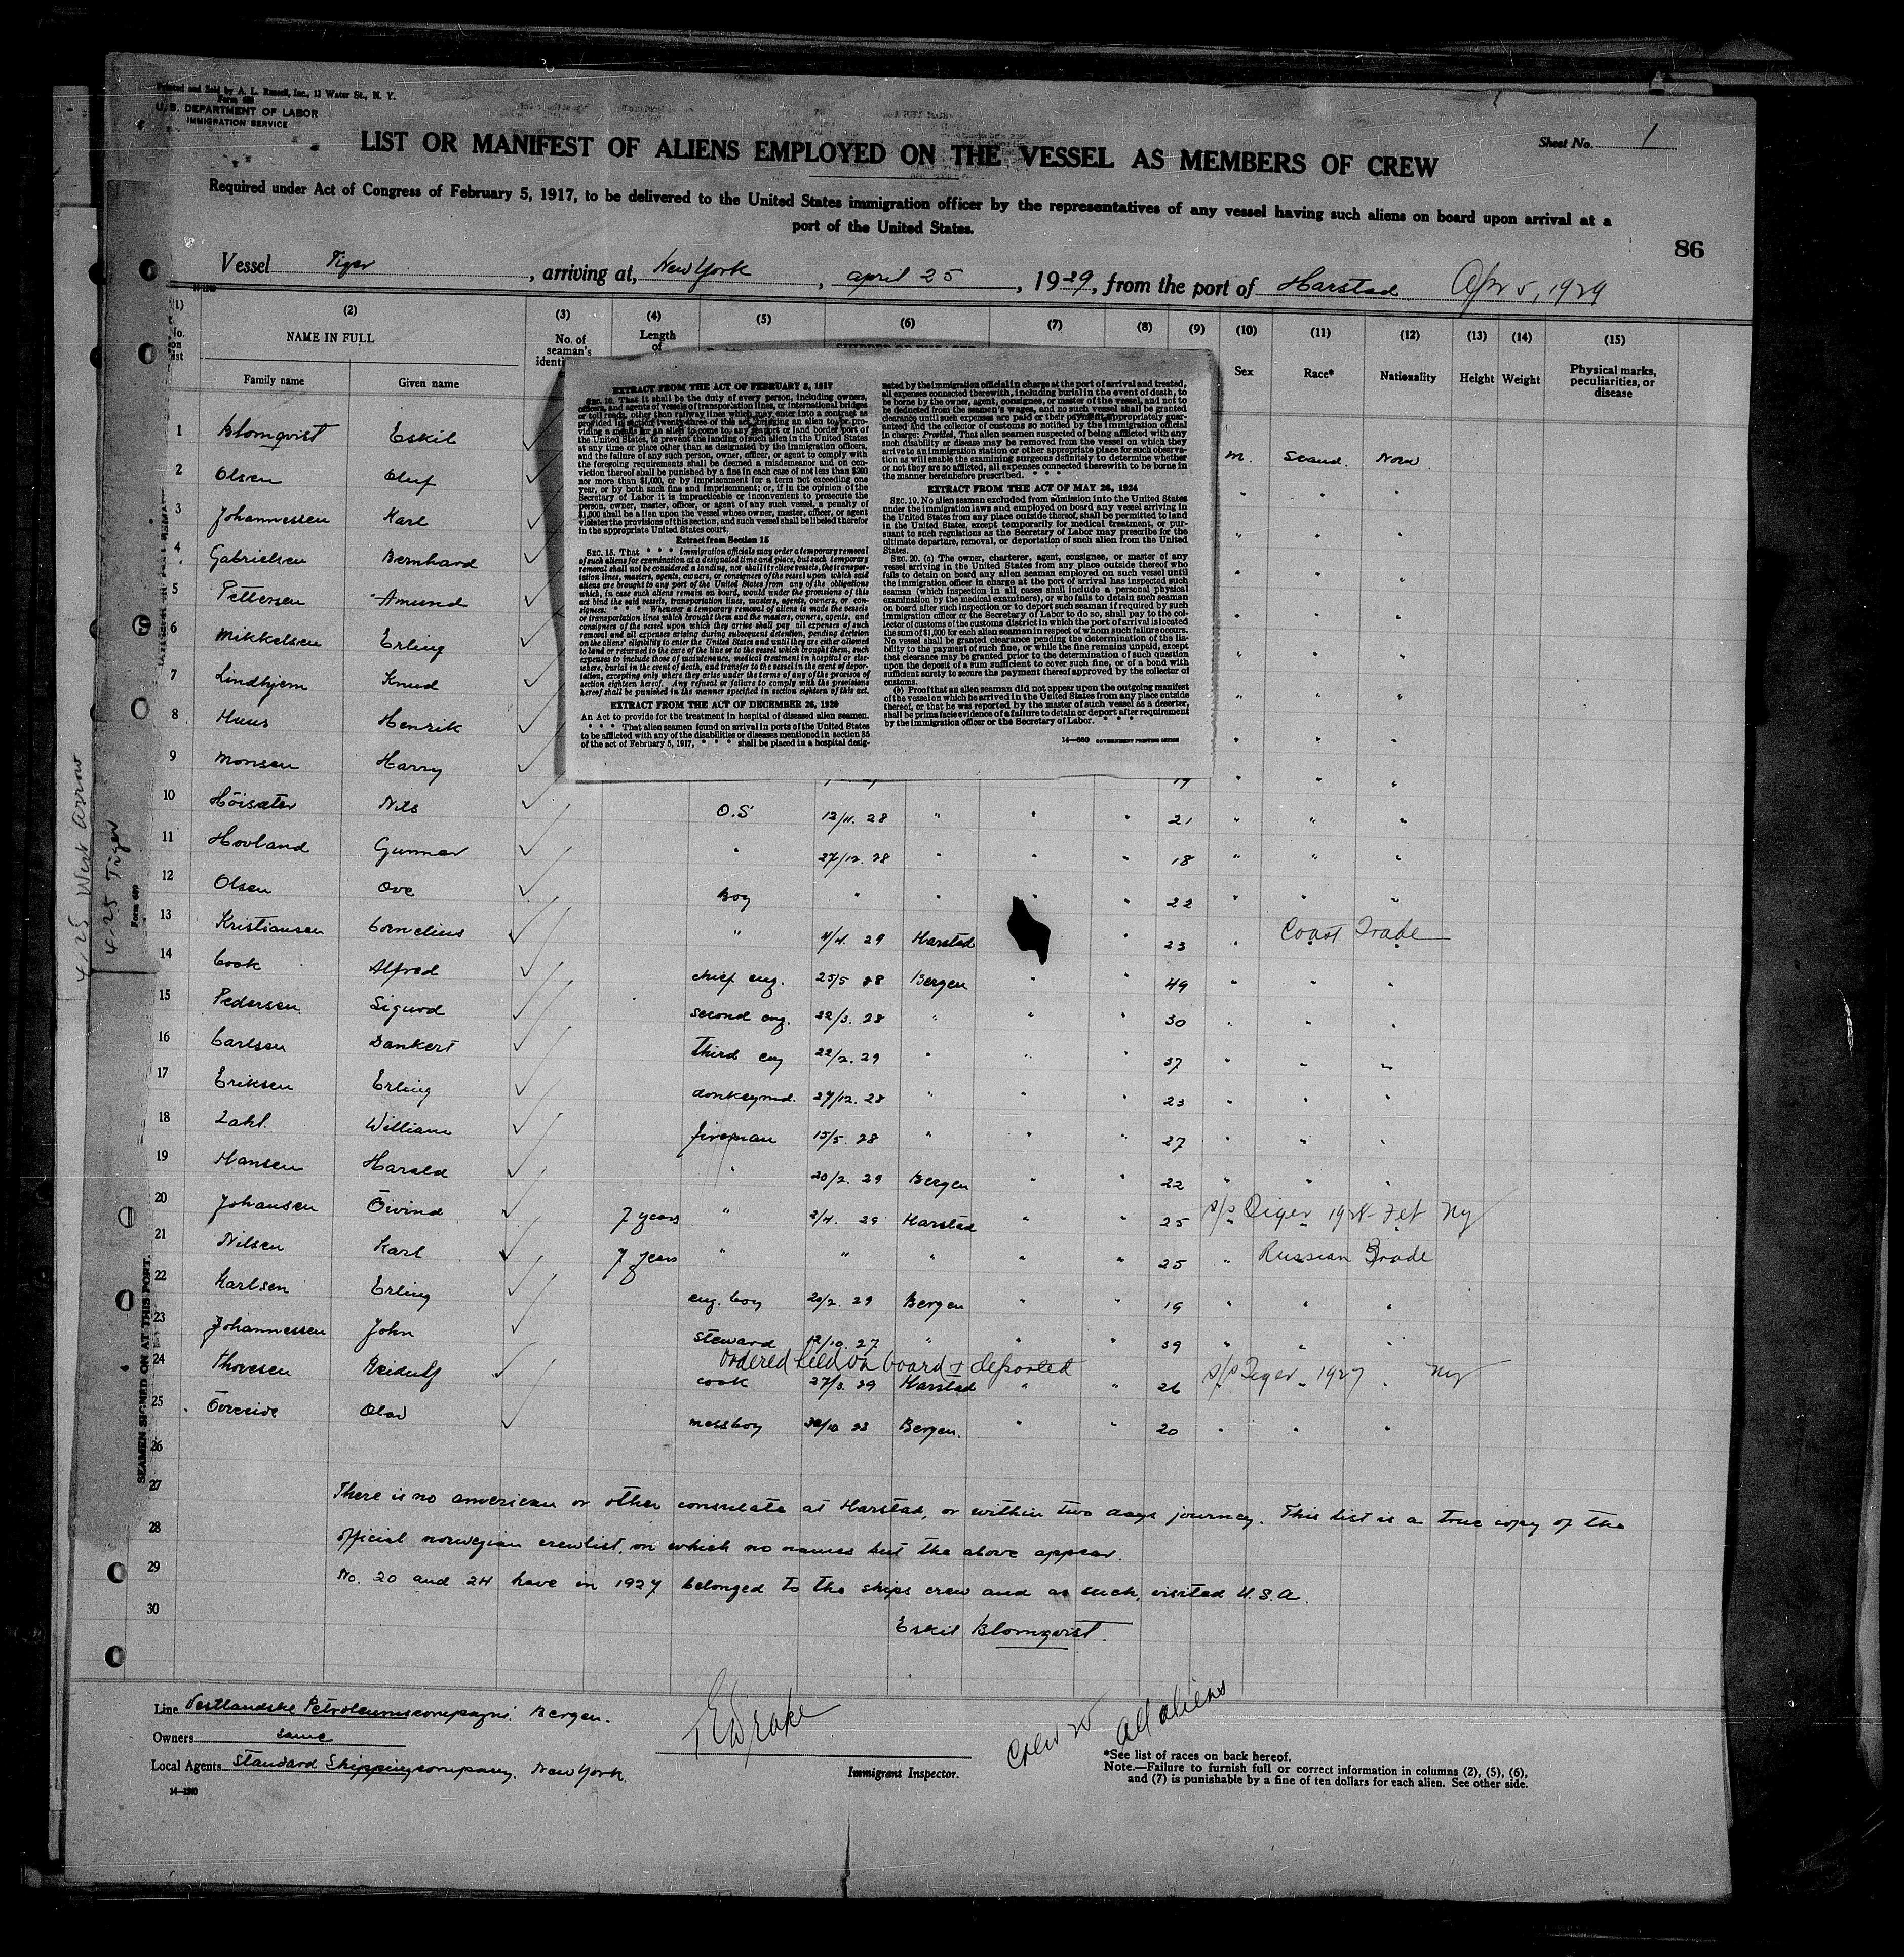 Printed and Sold by A. L. Russell, Inc., 13 Water St., N. Y.
Form 680
U. S. DEPARTMENT OF LABOR
IMMIGRATION SERVICE
Sheet No. 1
LIST OR MANIFEST OF ALIENS EMPLOYED ON THE VESSEL AS MEMBERS OF CREW
Required under Act of Congress of February 5, 1917, to be delivered to the United States immigration officer by the representatives of any vessel having such aliens on board upon arrival at a
port of the United States.
86
Vessel Tiger, arriving at, New York, april 25, 1929, from the port of Harstad Apr 5, 1929
(1) (2) (3) (4) (5) (6) (7) (8) (9) (10) (11) (12) (13) (14) (15)
No. on list NAME IN FULL No. of seaman's Length of Sex Race* Nationality Height Weight Physical marks, peculiarities, or disease
Family name Given name
EXTRACT FROM THE ACT OF FEBRUARY 5, 1917
SEC. 10. That it shall be the duty of every person, including owners,
officers, and agents of vessels of transportation lines, or international bridges
or toll roads, other than railway lines which may enter into a contract as
provided in section twenty-three of this act, bringing an alien to, or pro-
viding a means for an alien to come to, any seaport or land border port of
the United States, to prevent the landing of such alien in the United States
at any time or place other than as designated by the immigration officers,
and the failure of any such person, owner, officer, or agent to comply with
the foregoing requirements shall be deemed a misdemeanor and on con-
viction thereof shall be punished by a fine in each case of not less than $200
nor more than $1,000, or by imprisonment for a term not exceeding one
year, or by both such fine and imprisonment; or, if in the opinion of the
Secretary of Labor it is impracticable or inconvenient to prosecute the
person, owner, master, officer, or agent of any such vessel, a penalty of
$1,000 shall be a lien upon the vessel whose owner, master, officer, or agent
violates the provisions of this section, and such vessel shall be libeled therefor
in the appropriate United States court.
Extract from Section 15
SEC. 15. That * * * immigration officials may order a temporary removal
of such aliens for examination at a designated time and place, but such temporary
removal shall not be considered a landing, nor shall it relieve vessels, the transpor-
tation lines, masters, agents, owners, or consignees of the vessel upon which said
aliens are brought to any port of the United States from any of the obligations
which, in case such aliens remain on board, would under the provisions of this
act bind the said vessels, transportation lines, masters, agents, owners, or con-
signees: * * * Whenever a temporary removal of aliens is made the vessels
or transportation lines which brought them and the masters, owners, agents, and
consignees of the vessel upon which they arrive shall pay all expenses of such
removal and all expenses arising during subsequent detention, pending decision
on the aliens' eligibility to enter the United States and until they are either allowed
to land or returned to the care of the line or to the vessel which brought them, such
expenses to include those of maintenance, medical treatment in hospital or else-
where, burial in the event of death, and transfer to the vessel in the event of depor-
tation, excepting only where they arise under the terms of any of the provisos of
section eighteen hereof. Any refusal or failure to comply with the provisions
hereof shall be punished in the manner specified in section eighteen of this act.
EXTRACT FROM THE ACT OF DECEMBER 26, 1920
An Act to provide for the treatment in hospital of diseased alien seamen.
* * * That alien seamen found on arrival in ports of the United States
to be afflicted with any of the disabilities or diseases mentioned in section 35
of the act of February 5, 1917, * * * shall be placed in a hospital desig-
nated by the immigration official in charge at the port of arrival and treated,
all expenses connected therewith, including burial in the event of death, to
be borne by the owner, agent, consignee, or master of the vessel, and not to
be deducted from the seamen's wages, and no such vessel shall be granted
clearance until such expenses are paid or their payment appropriately guar-
anteed and the collector of customs so notified by the immigration official
in charge: Provided, That alien seamen suspected of being afflicted with any
such disability or disease may be removed from the vessel on which they
arrive to an immigration station or other appropriate place for such observa-
tion as will enable the examining surgeons definitely to determine whether
or not they are so afflicted, all expenses connected therewith to be borne in
the manner hereinbefore prescribed. * * *
EXTRACT FROM THE ACT OF MAY 26, 1924
SEC. 19. No alien seaman excluded from admission into the United States
under the immigration laws and employed on board any vessel arriving in
the United States from any place outside thereof, shall be permitted to land
in the United States, except temporarily for medical treatment, or pur-
suant to such regulations as the Secretary of Labor may prescribe for the
ultimate departure, removal, or deportation of such alien from the United
States.
SEC. 20. (a) The owner, charterer, agent, consignee, or master of any
vessel arriving in the United States from any place outside thereof who
fails to detain on board any alien seaman employed on such vessel until
the immigration officer in charge at the port of arrival has inspected such
seaman (which inspection in all cases shall include a personal physical
examination by the medical examiners), or who fails to detain such seaman
on board after such inspection or to deport such seaman if required by such
immigration officer or the Secretary of Labor to do so, shall pay to the col-
lector of customs of the customs district in which the port of arrival is located
the sum of $1,000 for each alien seaman in respect of whom such failure occurs.
No vessel shall be granted clearance pending the determination of the lia-
bility to the payment of such fine, or while the fine remains unpaid, except
that clearance may be granted prior to the determination of such question
upon the deposit of a sum sufficient to cover such fine, or of a bond with
sufficient surety to secure the payment thereof approved by the collector of
customs.
(b) Proof that an alien seaman did not appear upon the outgoing manifest
of the vessel on which he arrived in the United States from any place outside
thereof, or that he was reported by the master of such vessel as a deserter,
shall be prima facie evidence of a failure to detain or deport after requirement
by the immigration officer or the Secretary of Labor. * * *
14—680 GOVERNMENT PRINTING OFFICE
1 Blomqvist Eskil m. Scand. Norw
2 Olsen Oluf " " "
3 Johannessen Karl " " "
4 Gabrielsen Bernhard " " "
5 Pettersen Amund " " "
6 Mikkelsen Erling " " "
7 Lindhjem Knud " " "
8 Huus Henrik " " "
9 Monsen Harry 19 " " "
10 Höisæter Nils O.S 12/11. 28 " " " 21 " " "
11 Hovland Gunnar " 27/12. 28 " " " 18 " " "
12 Olsen Ove boy " " " " 22 " " "
13 Kristiansen Cornelius " 4/4. 29 Harstad " 23 " Coast Trade
14 Cook Alfred chief eng. 25/5 28 Bergen " " 49 " " "
15 Pedersen Sigurd second eng. 22/3. 28 " " " 30 " " "
16 Carlsen Dankert third eng 22/2. 29 " " " 37 " " "
17 Eriksen Erling donkeymd. 27/12. 28 " " " 23 " " "
18 Zahl. William fireman 15/5. 28 " " " 27 " " "
19 Hansen Harald " 20/2. 29 Bergen " " 22 " " "
20 Johansen Öivind 7 years " 2/4. 29 Harstad " " 25 s/s Tiger 192 Feb Ny
21 Nilsen Karl 7 years " " " " " 25 " Russian Trade
22 Karlsen Erling eng. boy 20/2. 29 Bergen " " 19 " " "
23 Johannessen John steward 12/10. 27 " " " 39 " " "
ordered held on board & deported
24 Thoresen Reidulf cook 27/3. 29 Harstad " " 26 s/s Tiger 1927 Ny
25 Olav messboy Bergen. " " 20 " " "
26
27 There is no american or other consulate at Harstad, or within two days journey. This list is a true copy of the
28 official norwegian crewlist, on which no names but the above appear.
29 No. 20 and 24 have in 1927 belonged to the ships crew and as such, visited U.S.A.
30 Eskil Blomqvist.
SEAMEN SIGNED ON AT THIS PORT.
Form 689
4-25 West Arrow
4-25 Tiger
Line Vestlandske Petroleumscompagni. Bergen.
Owners same
Local Agents Standard Shipping company. New York.
14—1240
Drake
Immigrant Inspector.
Crew 25 all aliens
*See list of races on back hereof.
Note.—Failure to furnish full or correct information in columns (2), (5), (6),
and (7) is punishable by a fine of ten dollars for each alien. See other side.